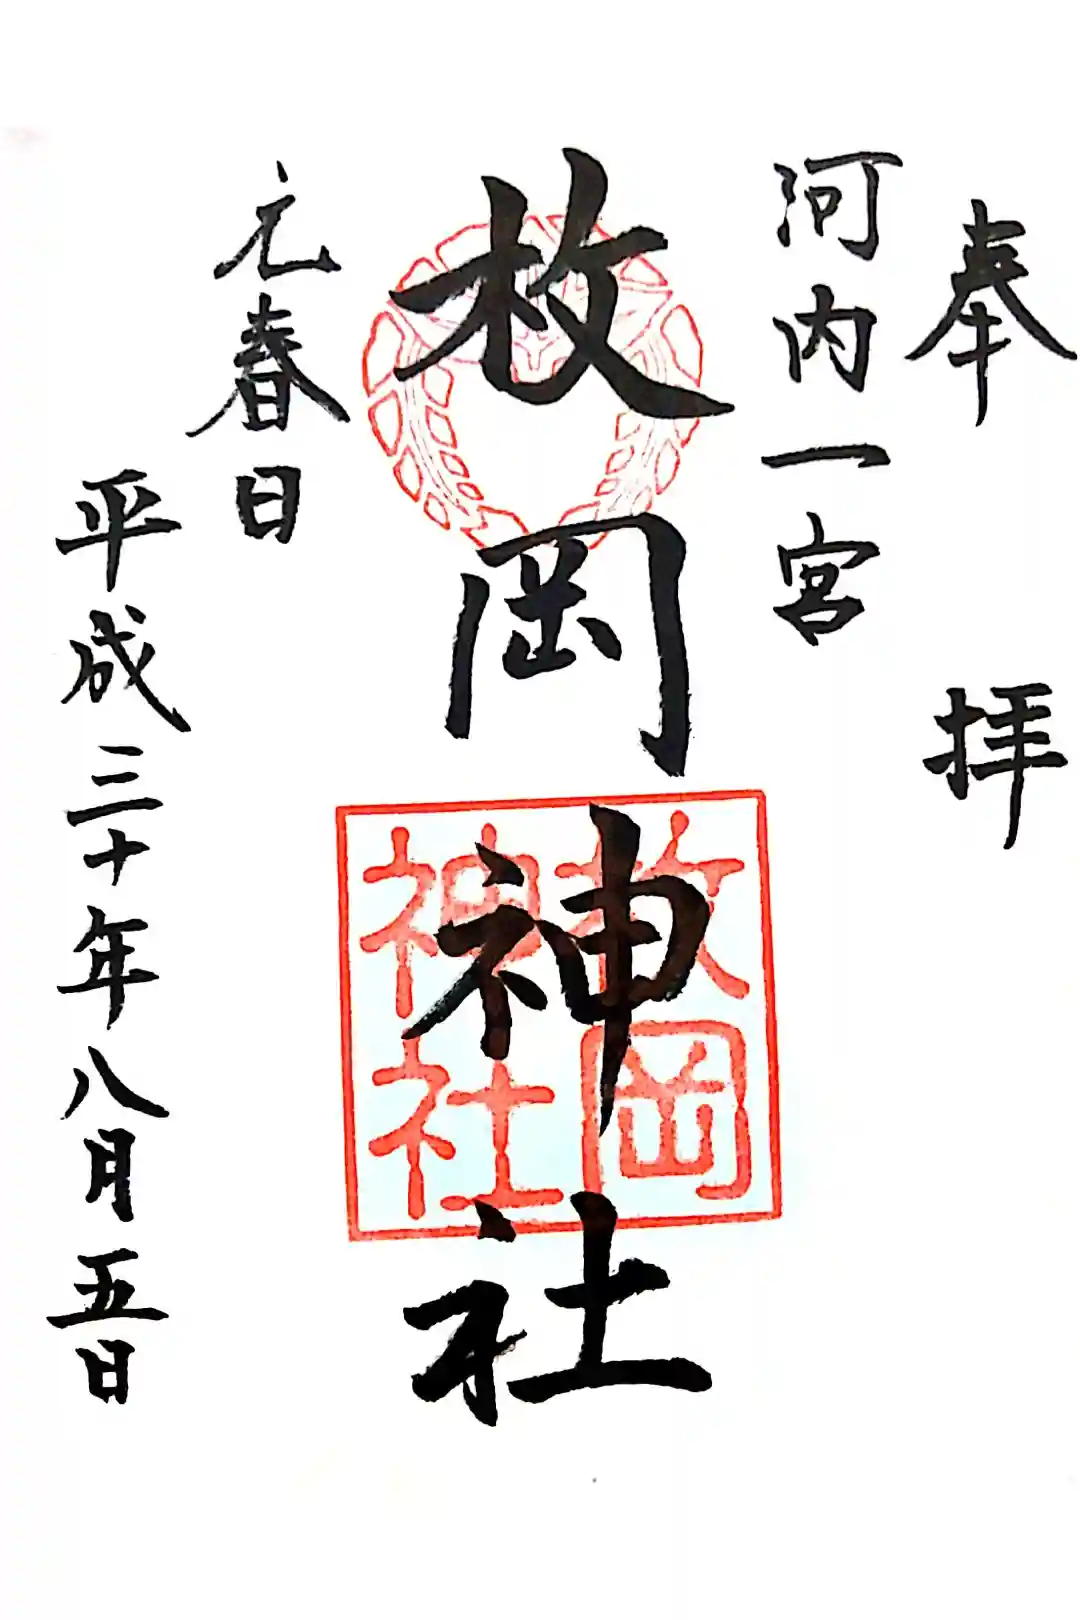 奉拝
河内一宮
枚岡神社
枚岡
神社
元春日
平成三十年八月五日